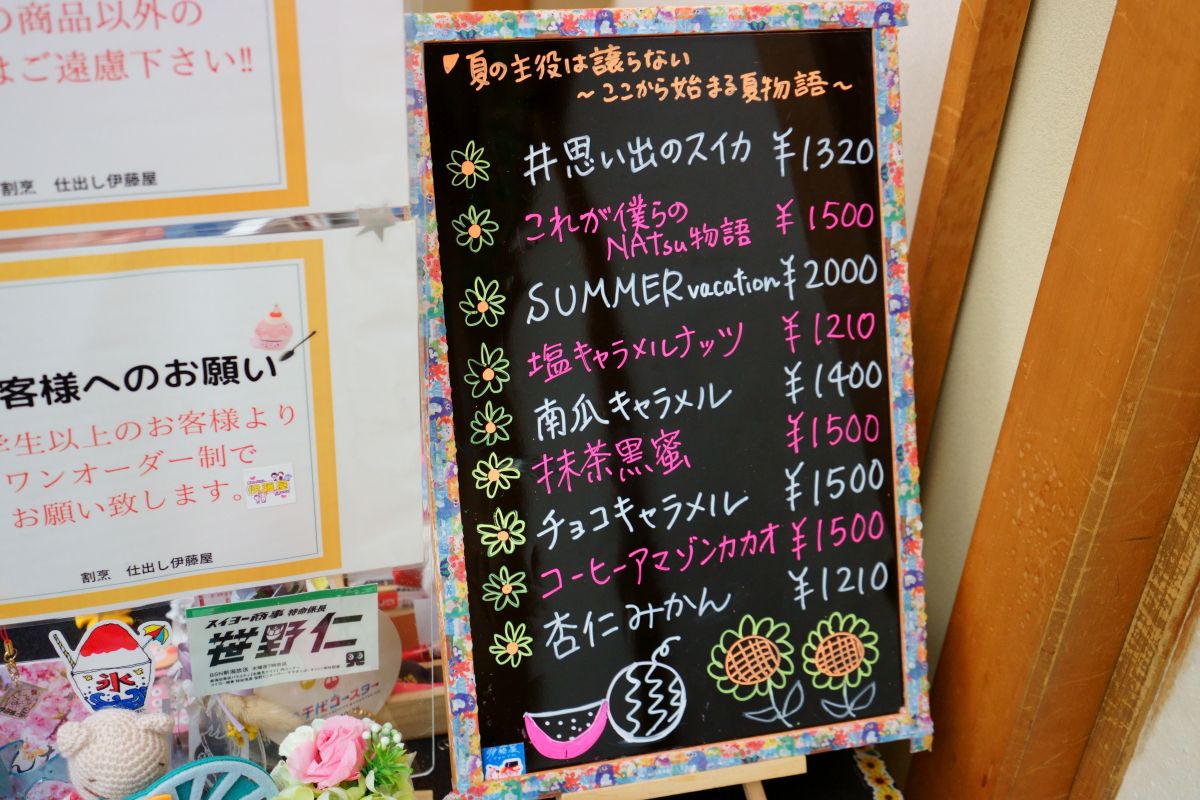 の商品以外の
はご遠慮下さい!!
割烹 仕出し伊藤屋
客様へのお願い
学生以上のお客様より
ワンオーダー制で
お願い致します。
伊藤屋
割烹 仕出し伊藤屋
スイヨー商事 特命係長
笹野仁
BSN新潟放送
氷
千代コースター
夏の主役は譲らない
～ここから始まる夏物語～
井思い出のスイカ ¥1320
これが僕らの
NAtsu物語 ¥1500
SUMMER vacation ¥2000
塩キャラメルナッツ ¥1210
南瓜キャラメル ¥1400
抹茶黒蜜 ¥1500
チョコキャラメル ¥1500
コーヒーアマゾンカカオ ¥1500
杏仁みかん ¥1210
伊藤屋